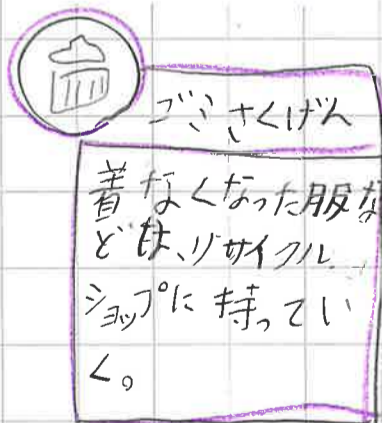 ごみさくげん
着なくなった服な
どは、リサイクル
ショップに持ってい
く。